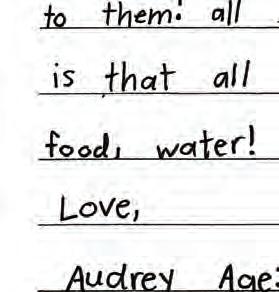 to them: all
is that all
food, water!
Love,
Audrey Age: